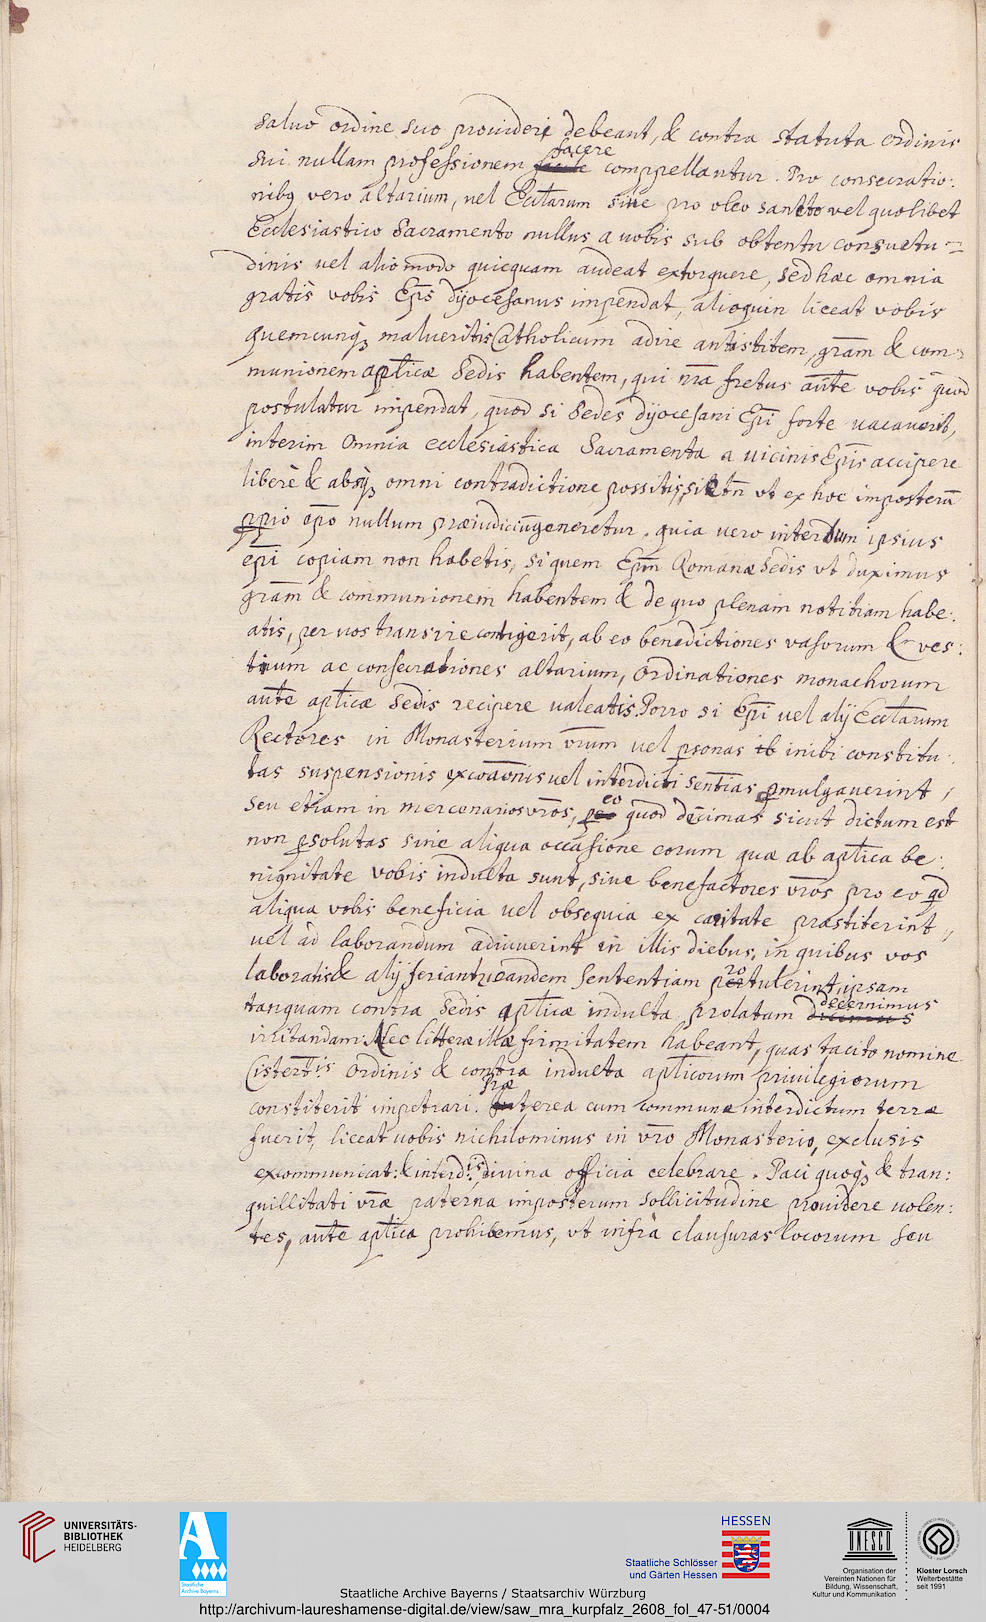 salvo ordine suo provideri debeant, & contra statuta ordinis
sui nullam professionem facere compellantur. Pro consecratio:
nibꝫ vero altarium, vel Ecclarum sive pro oleo sancto vel quolibet
Ecclesiastico Sacramento nullus a vobis sub obtentu consuetu=
dinis vel alio modo quicquam audeat extorquere, sed haec omnia
gratis vobis Ep̄s dyocesanus impendat, alioquin liceat vobis
quemcunqꝫ malueritis Catholicum adire antistitem, gr̄am & com=
munionem ap̄licae Sedis habentem, qui nr̄a fretus aut̄e vobis quod
postulatur impendat, quod si Sedes dyocesani Ep̄i forte vacaverīt,
interim omnia ecclesiastica Sacramenta a vicinis Ep̄is accipere
liberè & absqꝫ omni contradictione possitis, sic tn̄ ut ex hoc imposterū
ꝓprio ep̄o nullum praeiudiciūgeneretur. quia vero interdum ipsius
ep̄i copiam non habetis, si quem Ep̄m Romanae Sedis ut diximus
gr̄am & communionem habentem & de quo plenam notitiam habe:
atis, per vos transire contigerit, ab eo benedictiones vasorum & ves:
tium ac consecrationes altarium, ordinationes monachorum
aut̄e ap̄licae Sedis recipere valeatis. Porro si Ep̄i vel alij Ecclarum
Rectores in Monasterium vr̄um vel ꝑsonas ib inibi constitu:
tas suspensionis excoāōnis vel interdicti sentīas ꝓmulgaverint,
seu etiam in mercenarios vr̄os, eo quod decimas sicut dictum est
non ꝑsolutas sive aliqua occasione eorum quae ab ap̄lica be:
nignitate vobis indulta sunt, sive benefactores vr̄os pro eo qd̄
aliqua vobis beneficia vel obsequia ex caritate praestiterint,
vel ad laborandum adiuverint in illis diebus, in quibus vos
laboratis & alij feriantur eandem sententiam protulerint, ipsam
tanquam contra Sedis ap̄licae indulta prolatam decernimus
irritandam. Nec litterae illae firmitatem habeant, quas tacito nomine
Cistert̄is ordinis & contra indulta ap̄licorum privilegiorum
constiterit impetrari. Praeterea cum commune interdictum terrae
fuerit, liceat vobis nichilominus in vr̄o Monasterio, exclusis
excommunicat: & interd:is, divina officia celebrare. Paci quoqꝫ & tran:
quillitati vr̄ae paterna imposterum sollicitudine providere volen:
tes, aut̄e ap̄lica prohibemus, ut infrà clausuras locorum seu
UNIVERSITÄTS-
BIBLIOTHEK
HEIDELBERG
Staatliche
Archive Bayerns
HESSEN
Staatliche Schlösser
und Gärten Hessen
UNESCO
Organisation der
Vereinten Nationen für
Bildung, Wissenschaft,
Kultur und Kommunikation
Kloster Lorsch
Welterbestätte
seit 1991
Staatliche Archive Bayerns / Staatsarchiv Würzburg
http://archivum-laureshamense-digital.de/view/saw_mra_kurpfalz_2608_fol_47-51/0004